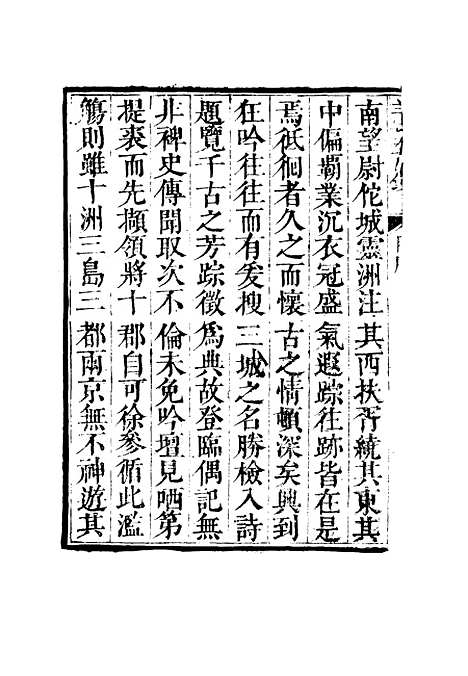 南望尉佗城靈洲注其西扶胥繞其東其
中偏霸業沉衣冠盛氣遐踪往跡皆在是
焉低徊者久之而懷古之情頓深矣興到
狂吟往往而有爰搜三城之名勝檢入詩
題覽千古之芳踪徵爲典故登臨偶記無
非稗史傳聞取次不倫未免吟壇見哂第
提衷而先擷領將十郡自可徐參循此濫
觴則雖十洲三島三都兩京無不神遊其